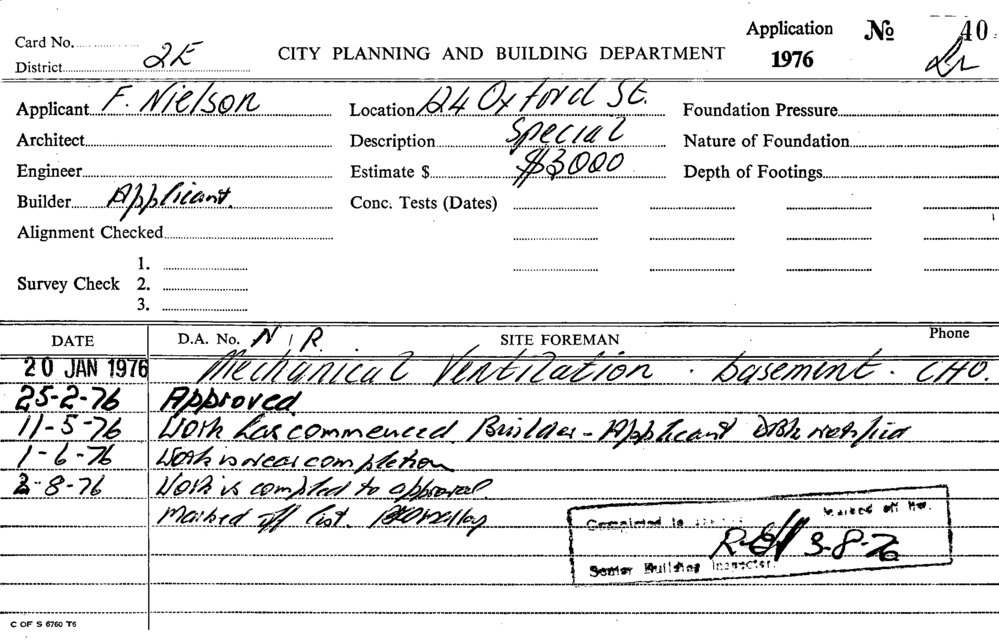 Card No.
Application № 40
District 2E CITY PLANNING AND BUILDING DEPARTMENT 1976
Applicant F. Nielson Location 24 Oxford St. Foundation Pressure
Architect Description Special Nature of Foundation
Engineer Estimate $ $3000 Depth of Footings
Builder Applicant. Conc. Tests (Dates)
Alignment Checked
1.
Survey Check 2.
3.
DATE D.A. No. N/R. SITE FOREMAN Phone
20 JAN 1976 Mechanical Ventilation. basement. CHO.
25-2-76 Approved
11-5-76 Work has commenced Builder - Applicant notified
1-6-76 Work is near completion
3-8-76 Work is completed to approval.
Marked off list.
Completed to Marked off
3-8-76
Senior Building Inspector.
C OF S 6760 T6